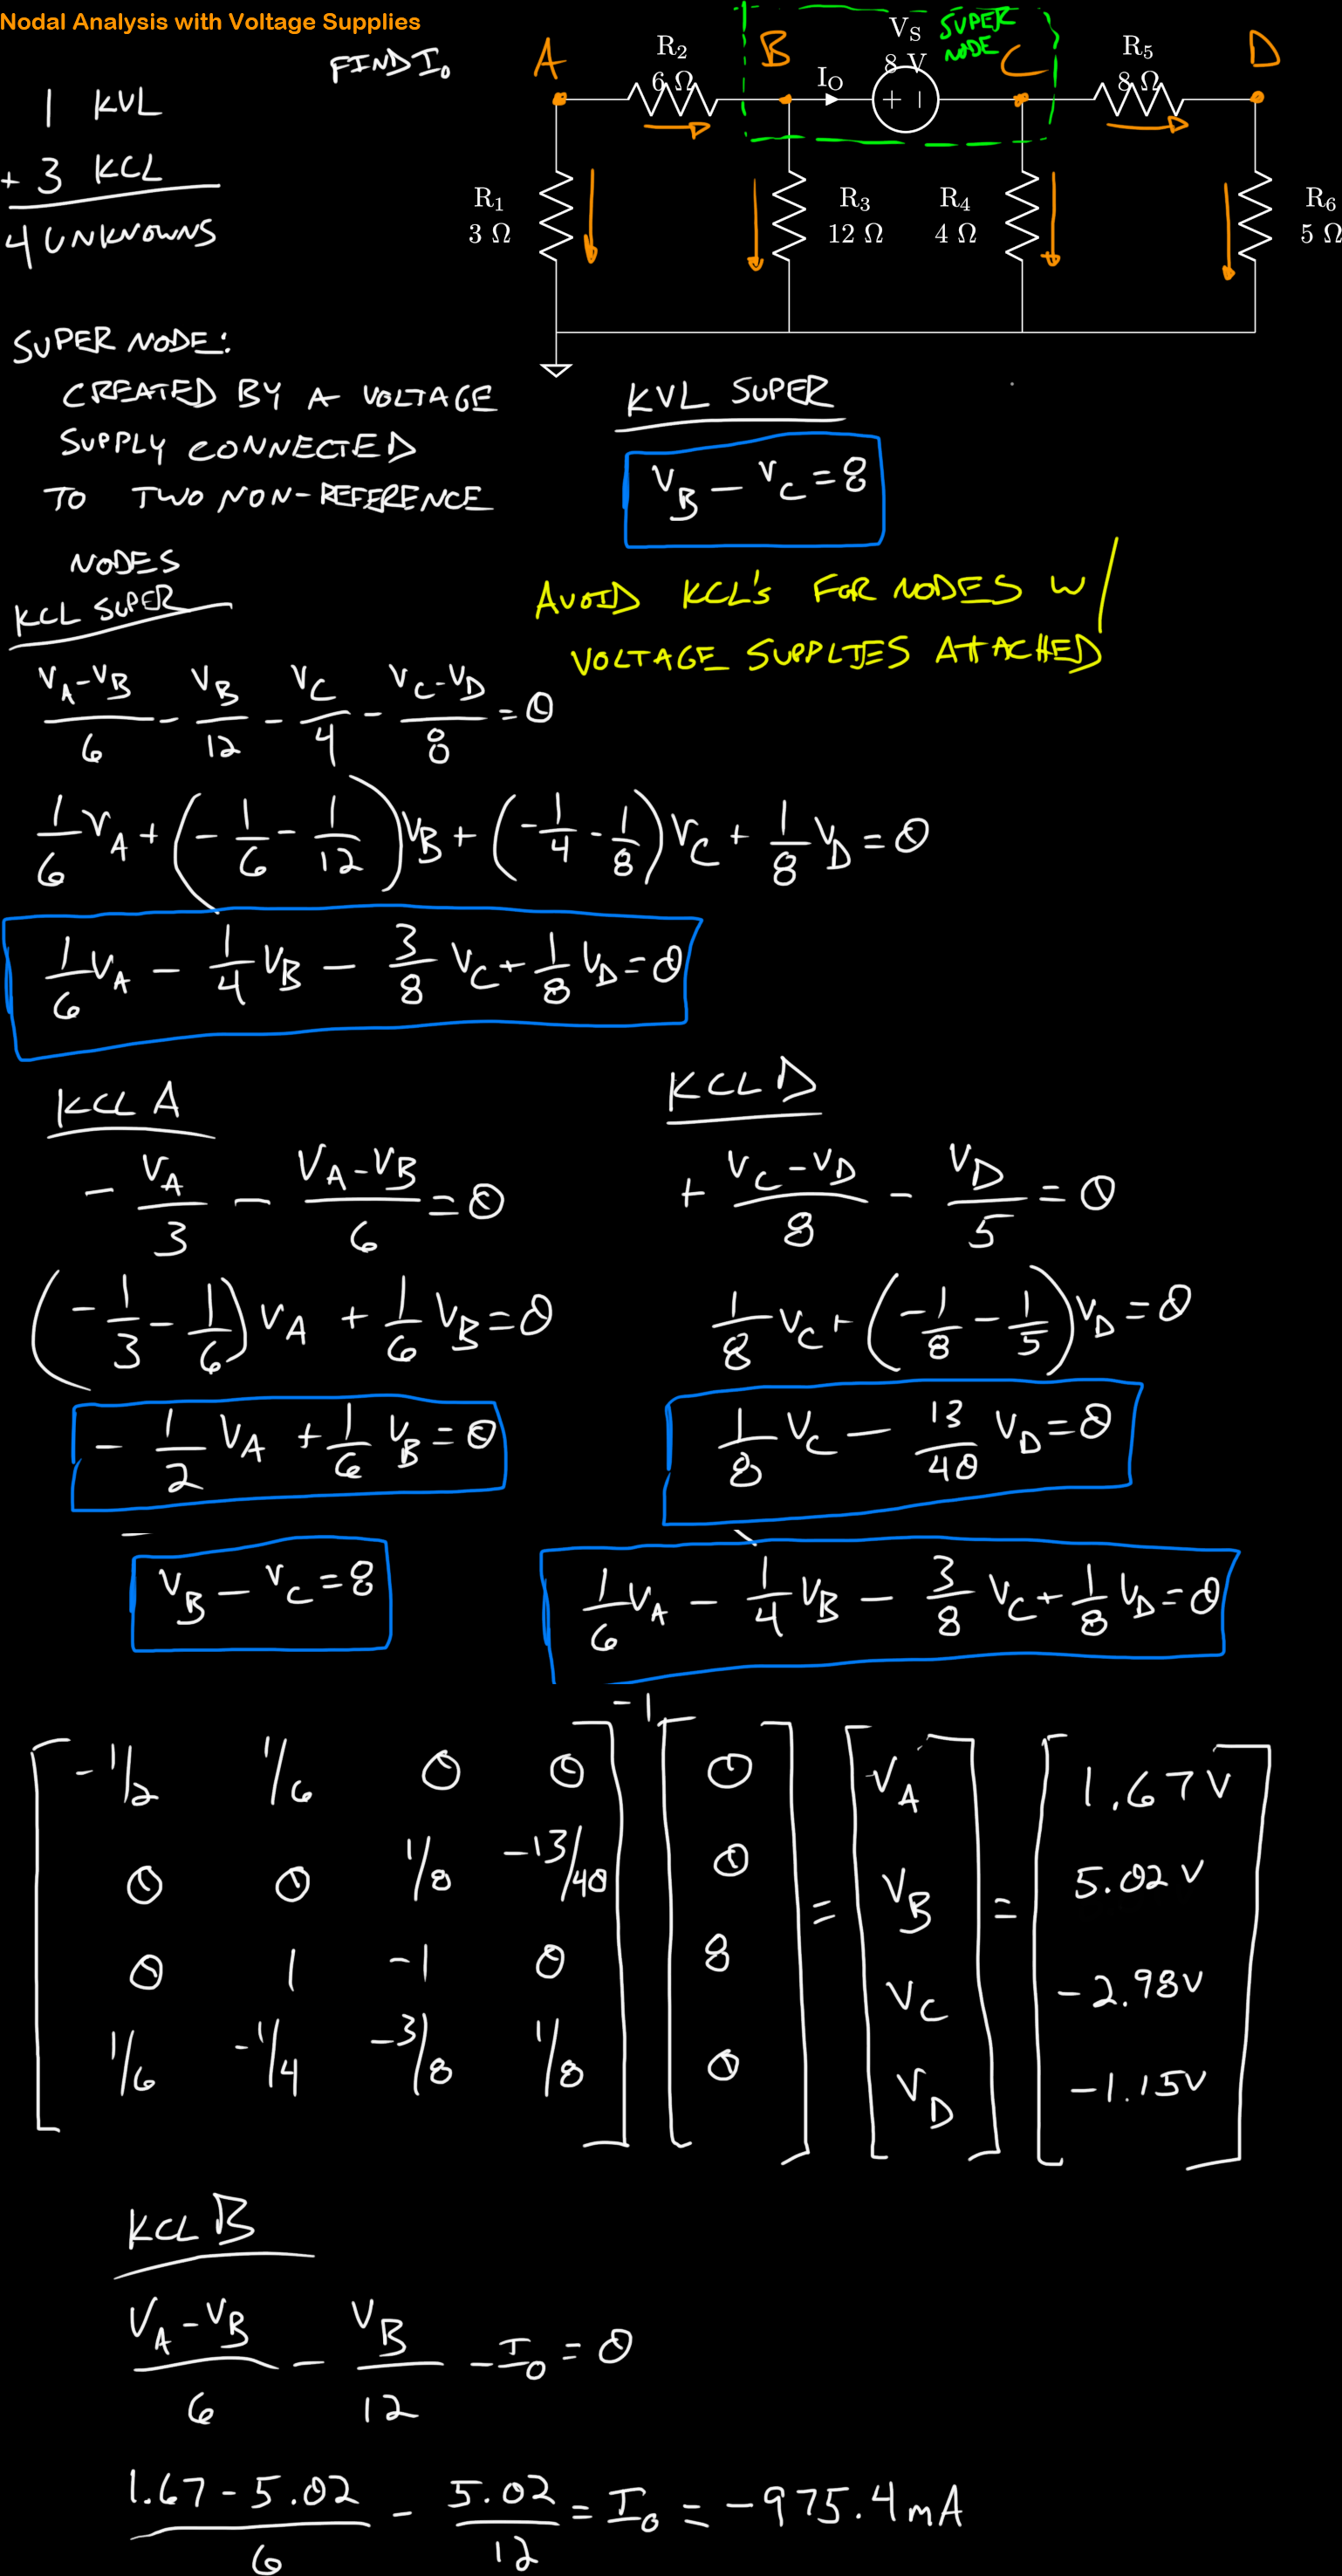 Nodal Analysis with Voltage Supplies
FIND I₀
1 KVL
+ 3 KCL
4 UNKNOWNS
A
R₂
6 Ω
B
I_O
V_S
8 V
+ −
SUPER
NODE
C
R₅
8 Ω
D
R₁
3 Ω
R₃
12 Ω
R₄
4 Ω
R₆
5 Ω
SUPER NODE:
CREATED BY A VOLTAGE
SUPPLY CONNECTED
TO TWO NON-REFERENCE
NODES
KVL SUPER
V_B − V_C = 8
AVOID KCL'S FOR NODES W/
VOLTAGE SUPPLIES ATTACHED
KCL SUPER
(V_A − V_B)/6 − V_B/12 − V_C/4 − (V_C − V_D)/8 = 0
1/6 V_A + (−1/6 − 1/12) V_B + (−1/4 − 1/8) V_C + 1/8 V_D = 0
1/6 V_A − 1/4 V_B − 3/8 V_C + 1/8 V_D = 0
KCL A
− V_A/3 − (V_A − V_B)/6 = 0
(−1/3 − 1/6) V_A + 1/6 V_B = 0
− 1/2 V_A + 1/6 V_B = 0
KCL D
+ (V_C − V_D)/8 − V_D/5 = 0
1/8 V_C + (−1/8 − 1/5) V_D = 0
1/8 V_C − 13/40 V_D = 0
V_B − V_C = 8
1/6 V_A − 1/4 V_B − 3/8 V_C + 1/8 V_D = 0
[−1/2 1/6 0 0]⁻¹ [0] [V_A] [1.67 V]
[0 0 1/8 −13/40] [0] = [V_B] = [5.02 V]
[0 1 −1 0] [8] [V_C] [−2.98 V]
[1/6 −1/4 −3/8 1/8] [0] [V_D] [−1.15 V]
KCL B
(V_A − V_B)/6 − V_B/12 − I₀ = 0
(1.67 − 5.02)/6 − 5.02/12 = I₀ = −975.4 mA